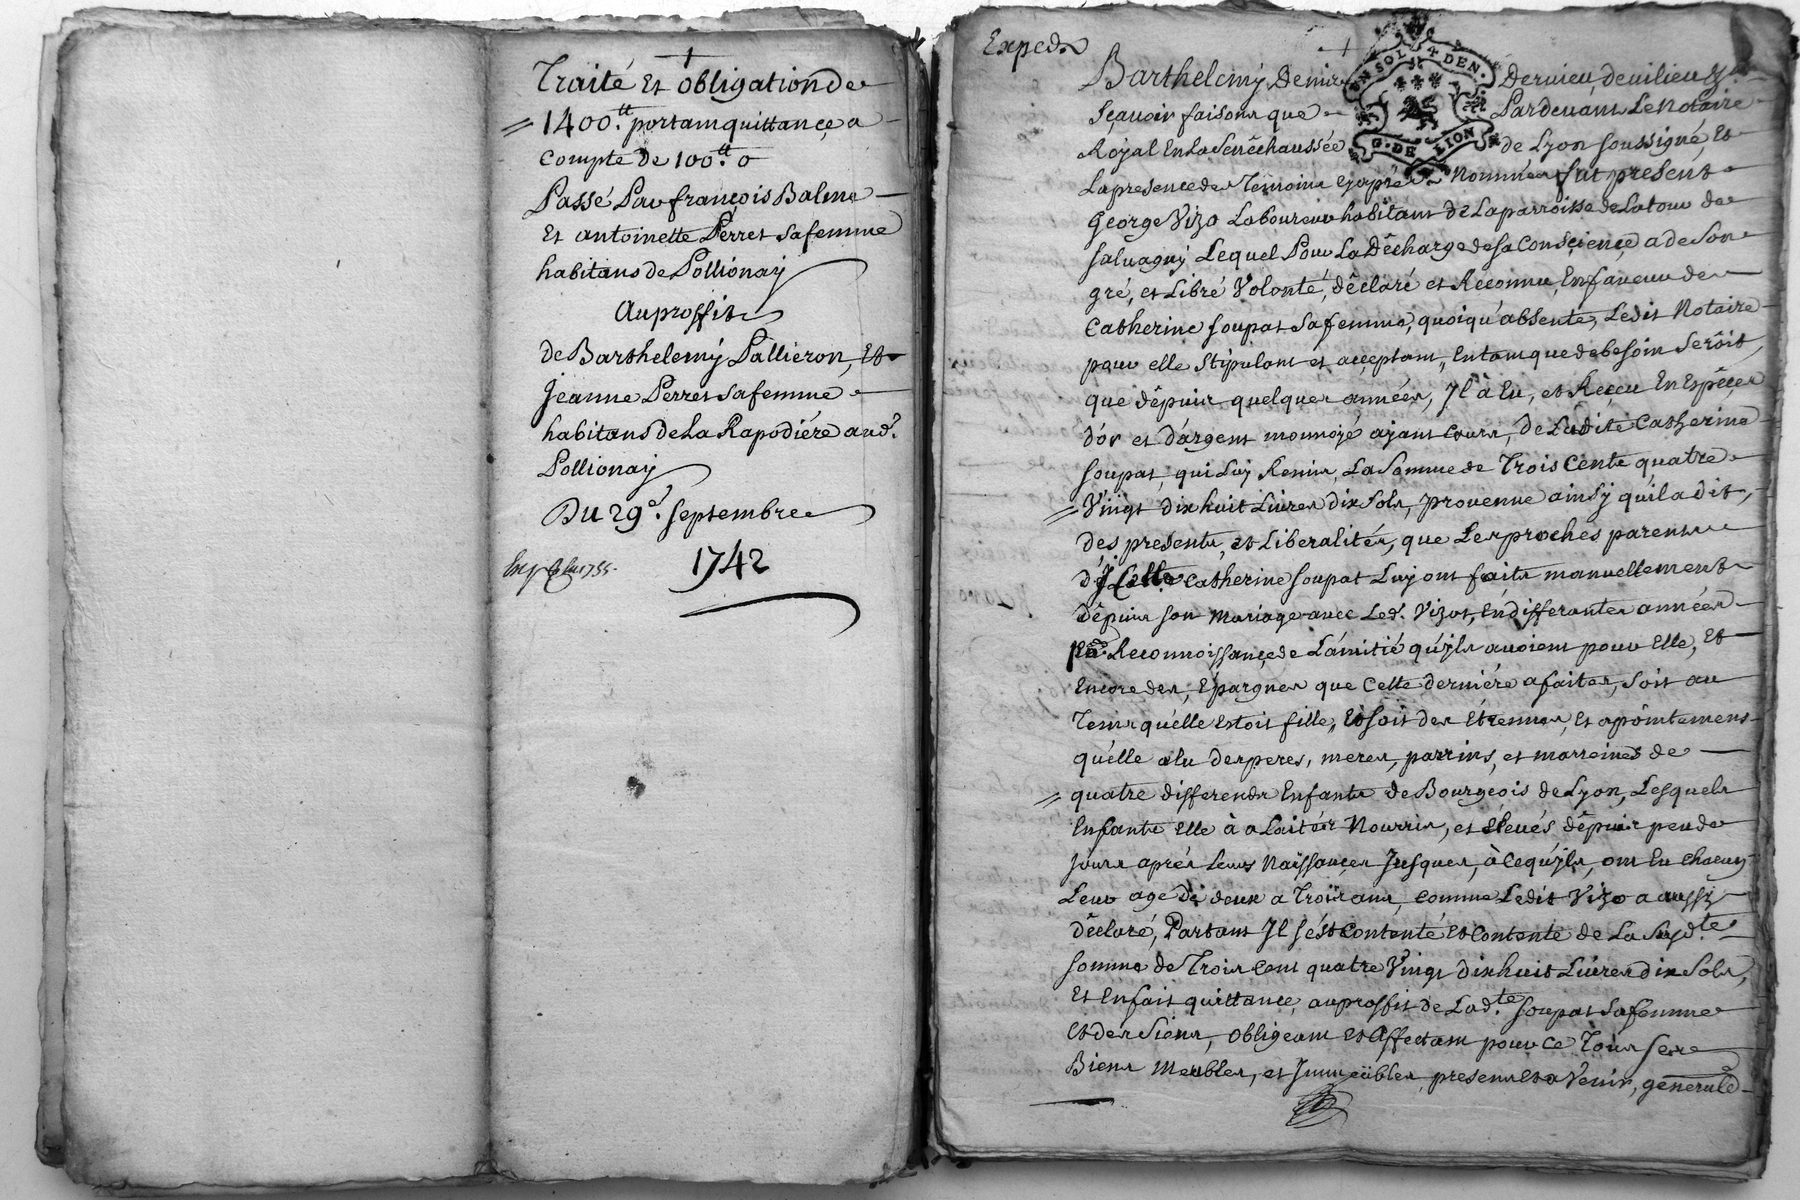 Traité Et obligation de
1400.tt portant quittance a
compte de 100.tt
Passé Par françois Balme
Et antoinette Perret sa femme
habitans de Pollionaÿ
Au proffit
de Barthelemÿ Pallieron, Et
Jeanne Perret sa femme
habitans de La Rapodiére aud.
Pollionaÿ
Du 29e. septembre
1742
Exped.
Barthelemÿ Denis dervieu, de vilieu &
sçavoir faisons que Pardevant Le Notaire
Royal En La Senêchaussée de Lyon soussigné, Et
La presence des Temoins cyaprés Nommés fut present
George Vizo Laboureur habitant de La parroisse de La tour de
salvagnÿ Lequel Pour La Décharge de sa Consçience a de son
gré, et Libré Volonté, déclaré et Reconnu, En faveur de
Catherine soupat sa femme, quoiqu'absente, Ledit Notaire
pour elle stipulant et acçeptant, Entant que de besoin Seroit,
que dépuis quelques années, Jl à Eu, et Reçeu En Espéçes
d'ór et d'argent monnoyé ayant cours, de Ladite Catherine
soupat, qui Luÿ Remis, La Somme de Trois Cents quatre
Vingt dix huit Livres dix Sols, provenue ainsÿ quil a dit,
des presents, et Liberalités, que Les proches parents
d'Jcelle Catherine soupat Luÿ ont faits manuellement
dépuis son Mariage avec Led. Vizot, En differantes années
En Reconnoissançe de L'amitié qu'jls avoient pour Elle, Et
Encore des Epargnes que Cette derniére a faites, soit au
Tems qu'elle Estoit fille, Et soit des Etrennes, Et apôintemens
qu'elle a Eu des peres, meres, parrins, et marreines de
quatre differends Enfants de Bourgeois de Lyon, Lesquels
Enfants Elle à alaités Nourris, et élevés dépuis peu de
jours aprés Leurs Naissançes Jusques, à Ce qu'jls, ont Eu Chacun
Leur age de deux a Trois ans, comme Ledit Vizo a aussÿ
déclaré, Partant Jl s'ést contenté Et Contente de La Susd.te
somme de Trois cent quatre Vingt dix huit Livres dix Sols,
Et En fait quittance, au proffit de Lad.te soupat sa femme
Et des Siens, obligeant Et Affectant pour ce Tous ses
Biens Meubles, et Jmmeübles, presens Et a Venir, generale